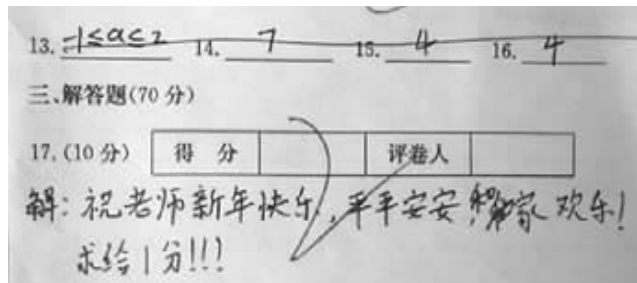 13. -1≤a≤2 14. 7 15. 4 16. 4
三、解答题(70分)
17.(10分) 得 分 评卷人
解:祝老师新年快乐,平平安安!家欢乐!
求给1分!!!